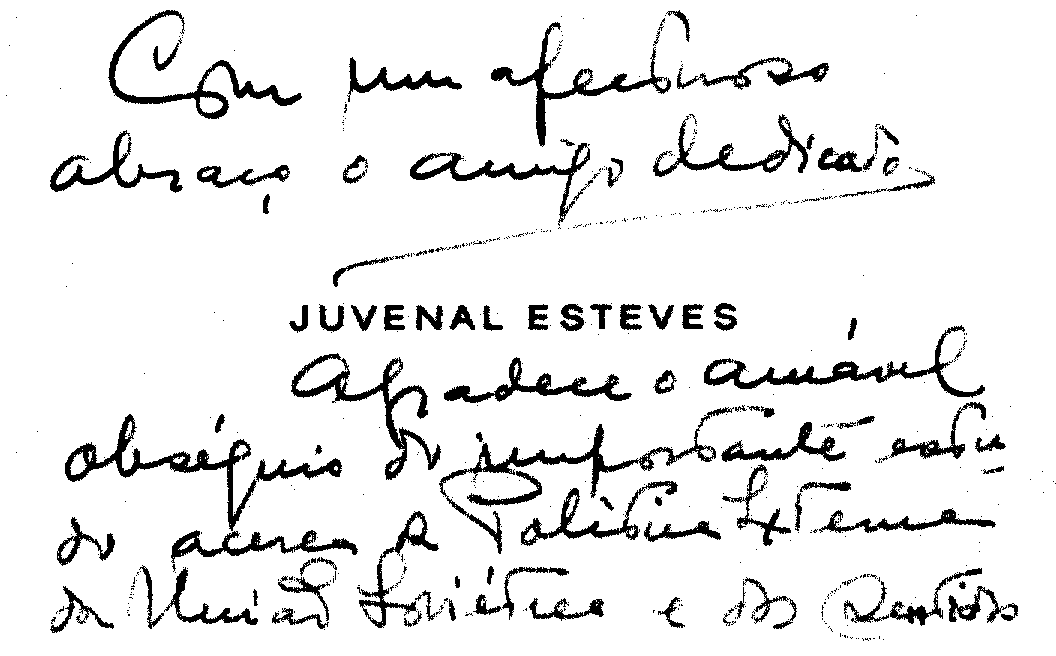 Com um afectuoso
abraço o amigo dedicado
JUVENAL ESTEVES
Agradece o amável
obséquio do importante estu-
do acerca da Política Externa
da União Soviética e dos Sentidos